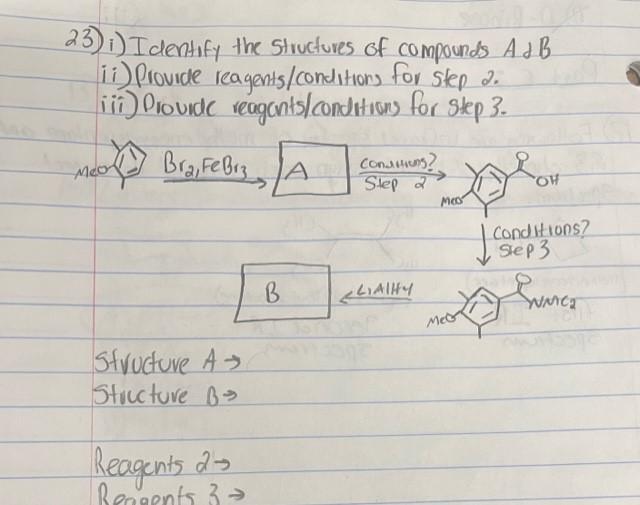 23) i) Identify the structures of compounds A & B
ii) Provide reagents/conditions for step 2.
iii) Provide reagents/conditions for step 3.
MeO
Br2, FeBr3
A
conditions?
Step 2
MeO
O
OH
conditions?
Step 3
B
LiAlH4
MeO
O
NMe2
Structure A →
Structure B →
Reagents 2 →
Reagents 3 →